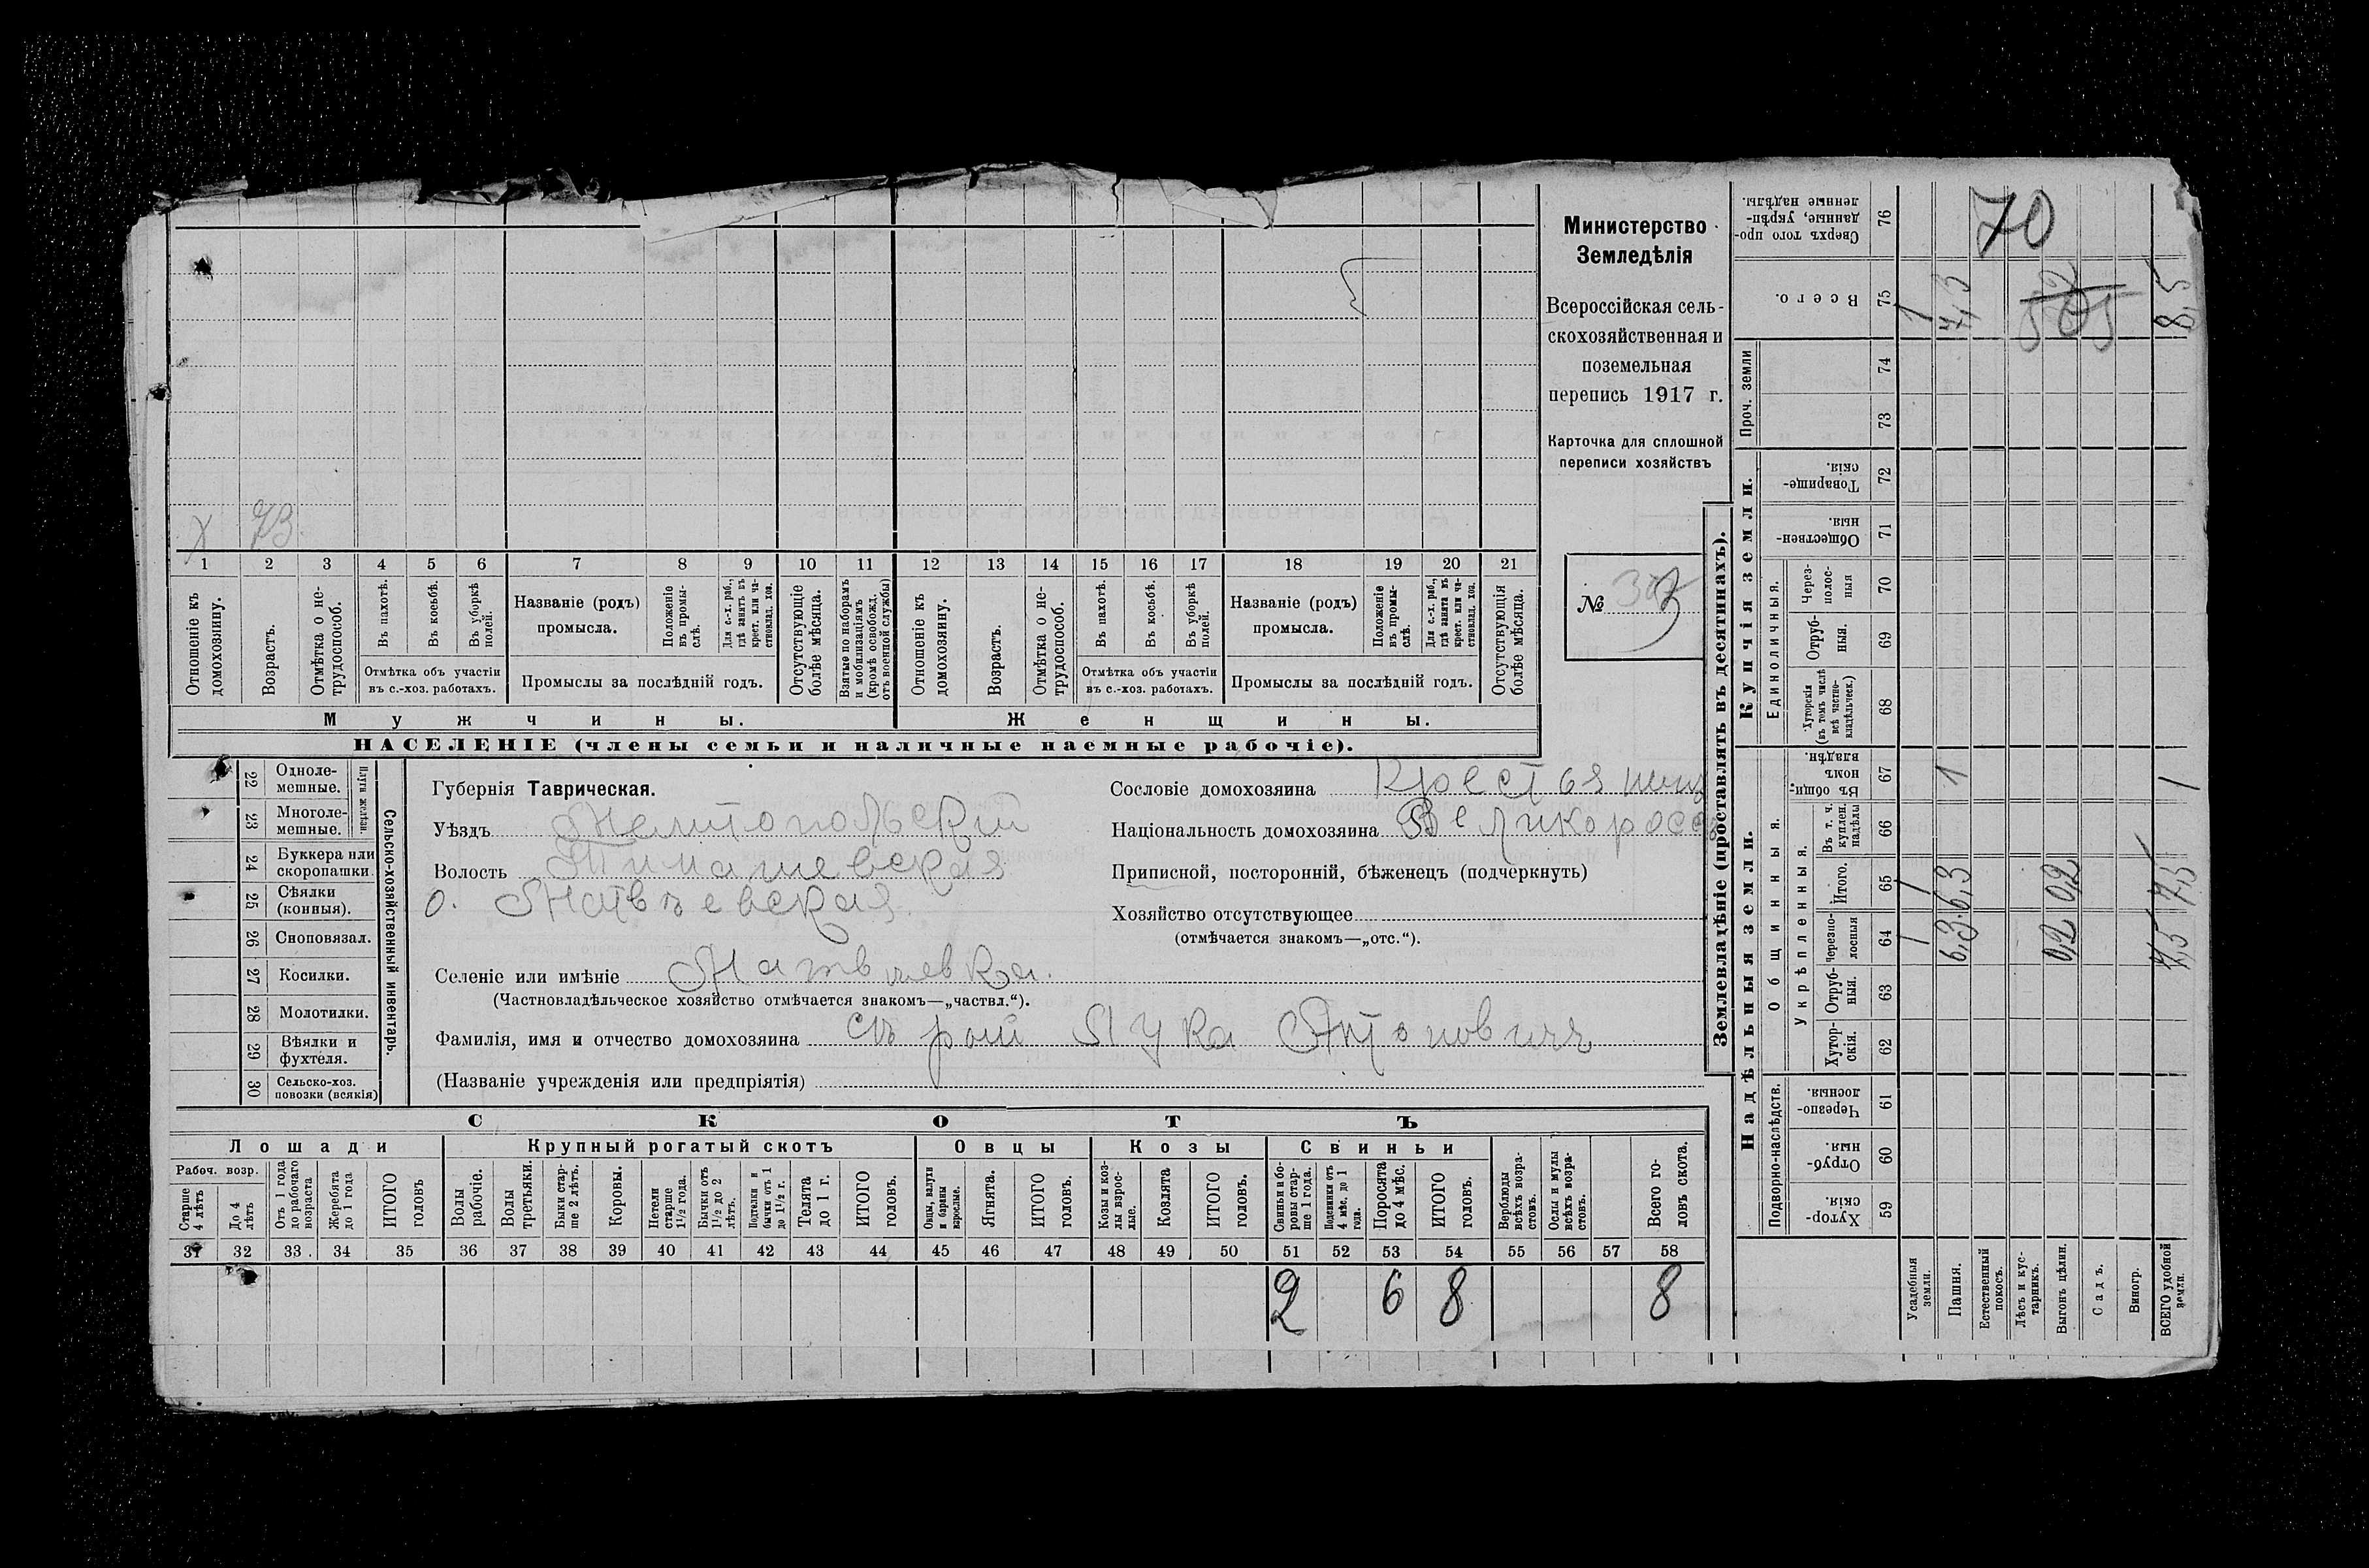 Министерство
Земледѣлія
Всероссійская сель-
скохозяйственная и
поземельная
перепись 1917 г.
Карточка для сплошной
переписи хозяйствъ
№
х 73.
1 2 3 4 5 6 7 8 9 10 11 12 13 14 15 16 17 18 19 20 21
Отношеніе къ домохозяину.
Возрастъ.
Отмѣтка о не-трудоспособ.
Въ пахотѣ.
Въ косьбѣ.
Въ уборкѣ полей.
Отмѣтка объ участіи
въ с.-хоз. работахъ.
Названіе (родъ)
промысла.
Положеніе въ промы-слѣ.
Для с.-х. раб., гдѣ занятъ въ крест. или ча-стновлад. хоз.
Промыслы за послѣдній годъ.
Отсутствующіе болѣе мѣсяца.
Взятые по наборамъ и мобилизаціямъ (кромѣ освобожд. отъ военной службы)
Отношеніе къ домохозяину.
Возрастъ.
Отмѣтка о не-трудоспособ.
Въ пахотѣ.
Въ косьбѣ.
Въ уборкѣ полей.
Отмѣтка объ участіи
въ с.-хоз. работахъ.
Названіе (родъ)
промысла.
Положеніе въ промы-слѣ.
Для с.-х. раб., гдѣ занята въ крест. или ча-стновлад. хоз.
Промыслы за послѣдній годъ.
Отсутствующія болѣе мѣсяца.
Мужчины. Женщины.
НАСЕЛЕНІЕ (члены семьи и наличные наемные рабочіе).
22 Одноле-мешные.
23 Многоле-мешные.
Плуги желѣзн.
24 Буккера или скоропашки.
25 Сѣялки (конныя).
26 Сноповязал.
27 Косилки.
28 Молотилки.
29 Вѣялки и фухтеля.
30 Сельско-хоз. повозки (всякія)
Сельско-хозяйственный инвентарь.
Губернія Таврическая.
Уѣздъ Мелитопольскій
Волость Тимашевская
о. Матвѣевская
Селеніе или имѣніе Матвѣевка.
(Частновладѣльческое хозяйство отмѣчается знакомъ—„частвл.“).
Фамилія, имя и отчество домохозяина Сърый Лука
(Названіе учрежденія или предпріятія)
Сословіе домохозяина
Національность домохозяина Великоросс
Приписной, посторонній, бѣженецъ (подчеркнуть)
Хозяйство отсутствующее
(отмѣчается знакомъ—„отс.“).
СКОТЪ
Лошади Крупный рогатый скотъ Овцы Козы Свиньи
Рабоч. возр.
Старше 4 лѣтъ
До 4 лѣтъ
Отъ 1 года до рабочаго возраста
Жеребята до 1 года
ИТОГО головъ
Волы рабочіе.
Волы третьяки.
Быки стар-ше 2 лѣтъ.
Коровы.
Петели старше 1½ года.
Бычки отъ 1½ до 2 лѣтъ.
Подтелки и бычки отъ 1 до 1½ г.
Телята до 1 г.
ИТОГО головъ.
Овцы, валухи и бараны взрослые.
Ягнята.
ИТОГО головъ.
Козы и коз-лы взрос-лые.
Козлята
ИТОГО головъ.
Свиньи и бо-ровы стар-ше 1 года.
Подсвинки отъ 4 мѣс. до 1 года.
Поросята до 4 мѣс.
ИТОГО головъ.
Верблюды всѣхъ возра-стовъ.
Ослы и мулы всѣхъ возра-стовъ.
Всего го-ловъ скота.
31 32 33 34 35 36 37 38 39 40 41 42 43 44 45 46 47 48 49 50 51 52 53 54 55 56 57 58
2 6 8 8
Землевладѣніе (проставлять въ десятинахъ).
Надѣльныя земли. Купчія земли. Проч. земли
Подворно-наслѣдств.
Общинныя.
Укрѣпленныя.
Единоличныя.
Сверхъ того про-данные, укрѣп-ленные надѣлы. 76 70
Всего. 75 1 7,3 8,5
74
73
Товарище-скія. 72
Обществен-ныя. 71
Через-полос-ныя 70
Отруб-ныя. 69
Хуторскія (въ томъ числѣ всѣ частно-владѣльческ.) 68
Въ общин-номъ владѣн. 67 1 1
Въ т. ч. куплен. надѣлы 66
Итого. 65 1 6,3 0,2 7,5
Черезпо-лосныя 64 1 6,3 0,2 7,5
Отруб-ныя. 63
Хутор-скія. 62
Черезпо-лосныя. 61
Отруб-ныя. 60
Хутор-скія. 59
Усадебныя земли.
Пашня.
Естественный покосъ.
Лѣсъ и кус-тарникъ.
Выгонъ цѣлин.
Садъ.
Виногр.
ВСЕГО удобной земли.